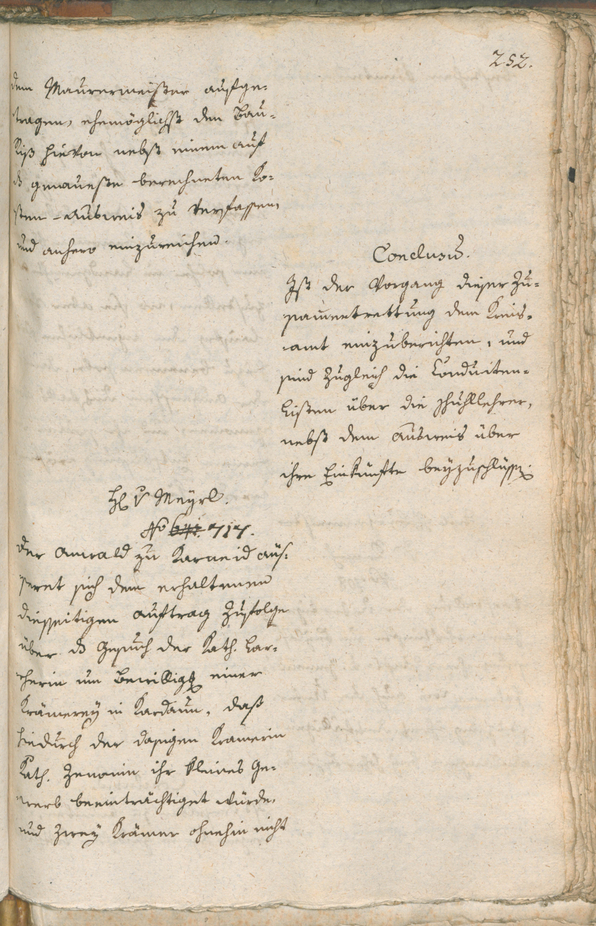 252.
dem Maurermeister aufge-
tragen, ehemöglichst den Bau-
Riß hievon nebst einem auf
das genaueste berechneten Ko-
sten-Ausweis zu verfassen,
und anhero einzureichen.
Conclusū.
Ist der Vorgang dieser Zu-
sam̄entrettung dem Kreis-
amt einzuberichten, und
sind zugleich die Conduiten-
Listen über die Schullehrer,
nebst dem Ausweis über
ihre Einkünfte beyzuschlüss:
H. v Meyrl.
No 717.
Der Anwald zu Karneid äus-
seret sich dem erhaltenen
diesseitigen Auftrag zufolge
über das Gesuch der Kath. Lar-
cherin um Bewilligg einer
Krämerey in Kardaun, daß
hiedurch der dasigen Kramerin
Kath. Zenonin ihr kleines Ge-
werb beeinträchtiget würde,
und zwey Krämer ohnehin nicht